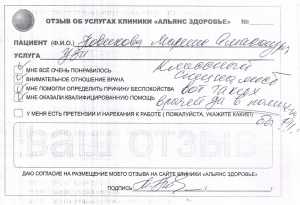 ОТЗЫВ ОБ УСЛУГАХ КЛИНИКИ «АЛЬЯНС ЗДОРОВЬЕ» №
ПАЦИЕНТ (Ф.И.О.) Новикова Марина
УСЛУГА УЗИ
МНЕ ВСЁ ОЧЕНЬ ПОНРАВИЛОСЬ Классный
ВНИМАТЕЛЬНОЕ ОТНОШЕНИЕ ВРАЧА специалист
МНЕ ПОМОГЛИ ОПРЕДЕЛИТЬ ПРИЧИНУ БЕСПОКОЙСТВА вот таких
МНЕ ОКАЗАЛИ КВАЛИФИЦИРОВАННУЮ ПОМОЩЬ врачей да в
У МЕНЯ ЕСТЬ ПРЕТЕНЗИИ И НАРЕКАНИЯ К РАБОТЕ ( ПОЖАЛУЙСТА, УКАЖИТЕ КАКИЕ?)
ваш отзыв
ДАЮ СОГЛАСИЕ НА РАЗМЕЩЕНИЕ МОЕГО ОТЗЫВА НА САЙТЕ КЛИНИКИ «АЛЬЯНС ЗДОРОВЬЕ»
ПОДПИСЬ